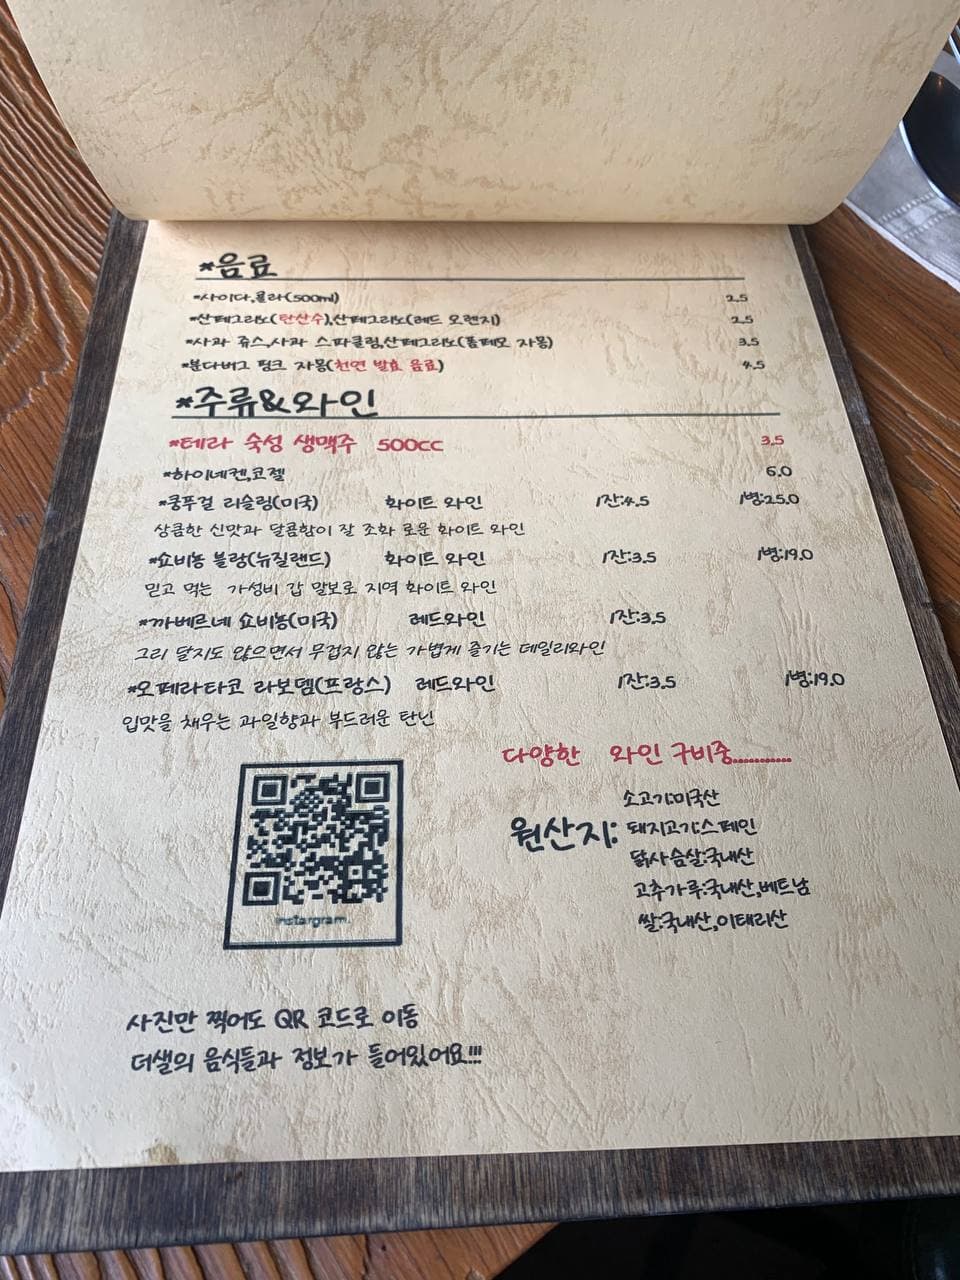 *음료
*사이다,콜라(500ml) 2.5
*산페그리노(탄산수),산페그리노(레드 오렌지) 2.5
*사과 쥬스,사과 스파클링,산페그리노(폼페모 자몽) 3.5
*분다버그 핑크 자몽(천연 발효 음료) 4.5
*주류&와인
*테라 숙성 생맥주 500cc 3.5
*하이네켄,코젤 6.0
*쿵푸걸 리슬링(미국) 화이트 와인 1잔:4.5 1병:25.0
상큼한 신맛과 달콤함이 잘 조화 로운 화이트 와인
*쇼비뇽 블랑(뉴질랜드) 화이트 와인 1잔:3.5 1병:19.0
믿고 먹는 가성비 갑 말보로 지역 화이트 와인
*까베르네 쇼비뇽(미국) 레드와인 1잔:3.5
그리 달지도 않으면서 무겁지 않는 가볍게 즐기는 데일리와인
*오페라타코 라보뎀(프랑스) 레드와인 1잔:3.5 1병:19.0
입맛을 채우는 과일향과 부드러운 탄닌
다양한 와인 구비중............
원산지:
소고기:미국산
돼지고기:스페인
닭사슴살:국내산
고추가루:국내산,베트남
쌀:국내산,이태리산
instargram
사진만 찍어도 QR 코드로 이동
더샐의 음식들과 정보가 들어있어요!!!